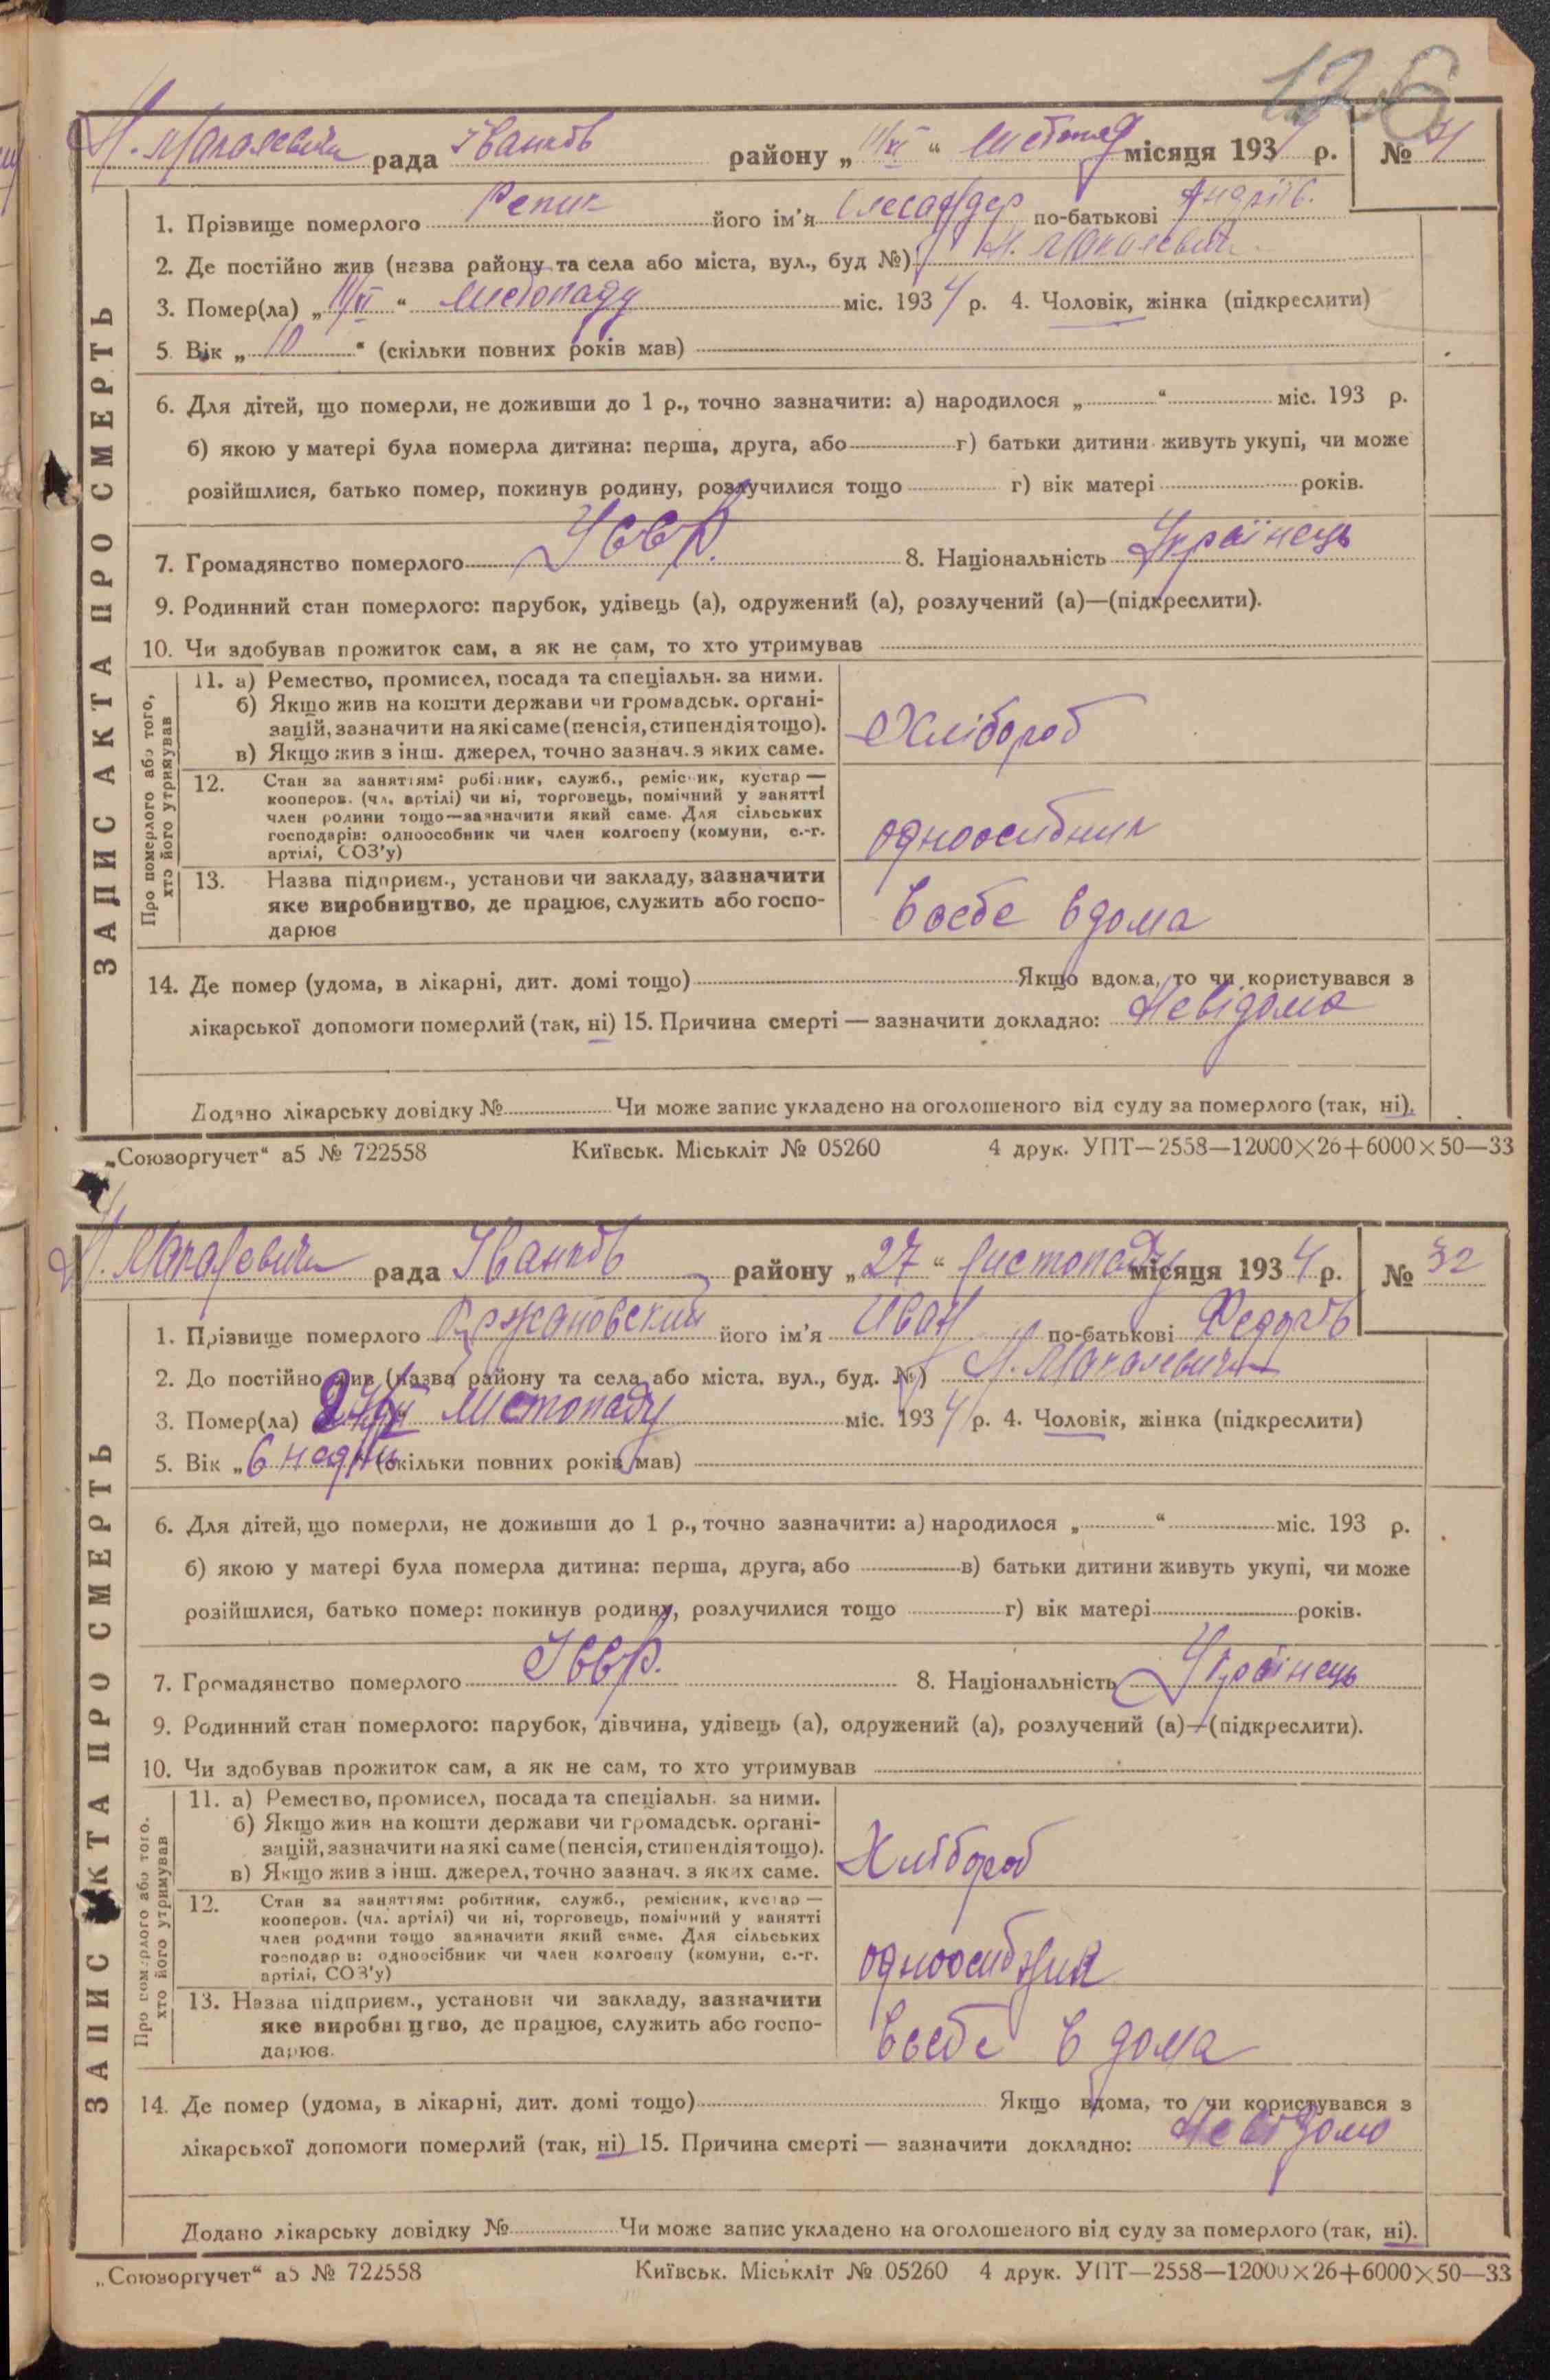 126
М. Макалевичі рада Іванків району „11/XI“ листопад місяця 1934 р. № 31
ЗАПИС АКТА ПРО СМЕРТЬ
1. Прізвище померлого Репик його ім'я по-батькові Андріїв.
2. Де постійно жив (назва району та села або міста, вул., буд №) М. Макалевичі
3. Помер(ла) „11/XI“ листопаду міс. 1934 р. 4. Чоловік, жінка (підкреслити)
5. Вік „10“ (скільки повних років мав)
6. Для дітей, що померли, не доживши до 1 р., точно зазначити: а) народилося „ “ міс. 193 р.
б) якою у матері була померла дитина: перша, друга, або г) батьки дитини живуть укупі, чи може
розійшлися, батько помер, покинув родину, розлучилися тощо г) вік матері років.
7. Громадянство померлого УССР. 8. Національність Українець
9. Родинний стан померлого: парубок, удівець (а), одружений (а), розлучений (а)—(підкреслити).
10. Чи здобував прожиток сам, а як не сам, то хто утримував
Про померлого або того,
хто його утримував
11. а) Ремество, промисел, посада та спеціальн. за ними.
б) Якщо жив на кошти держави чи громадськ. органі-
зацій, зазначити на які саме (пенсія, стипендія тощо).
в) Якщо жив з інш. джерел, точно зазнач. з яких саме.
Хлібороб
12. Стан за заняттям: робітник, служб., ремісник, кустар —
кооперов. (чл. артілі) чи ні, торговець, помічний у занятті
член родини тощо—зазначити який саме. Для сільських
господарів: одноособник чи член колгоспу (комуни, с.-г.
артілі, СОЗ'у)
одноосибник
13. Назва підприєм., установи чи закладу, зазначити
яке виробництво, де працює, служить або госпо-
дарює
в себе вдома
14. Де помер (удома, в лікарні, дит. домі тощо) Якщо вдома, то чи користувався з
лікарської допомоги померлий (так, ні) 15. Причина смерті — зазначити докладно: Невідома
Додано лікарську довідку № Чи може запис укладено на оголошеного від суду за померлого (так, ні).
„Союзоргучет“ а5 № 722558 Київськ. Міськліт № 05260 4 друк. УПТ—2558—12000×26+6000×50—33
М. Макалевичі рада Іванків району „27“ листопаду місяця 1934 р. № 32
ЗАПИС АКТА ПРО СМЕРТЬ
1. Прізвище померлого його ім'я Иван по-батькові Федорів
2. До постійно жив (назва району та села або міста, вул., буд. №) М. Макалевичі
3. Помер(ла) листопаду міс. 1934 р. 4. Чоловік, жінка (підкреслити)
5. Вік „6 недиль (скільки повних років мав)
6. Для дітей, що померли, не доживши до 1 р., точно зазначити: а) народилося „ “ міс. 193 р.
б) якою у матері була померла дитина: перша, друга, або в) батьки дитини живуть укупі, чи може
розійшлися, батько помер: покинув родину, розлучилися тощо г) вік матері років.
7. Громадянство померлого УССР. 8. Національність Українець
9. Родинний стан померлого: парубок, дівчина, удівець (а), одружений (а), розлучений (а)—(підкреслити).
10. Чи здобував прожиток сам, а як не сам, то хто утримував
Про померлого або того.
хто його утримував
11. а) Ремество, промисел, посада та спеціальн. за ними.
б) Якщо жив на кошти держави чи громадськ. органі-
зацій, зазначити на які саме (пенсія, стипендія тощо).
в) Якщо жив з інш. джерел, точно зазнач. з яких саме.
Хлібороб
12. Стан за заняттям: робітник, служб., ремісник, кустар —
кооперов. (чл. артілі) чи ні, торговець, помічний у занятті
член родини тощо зазначити який саме. Для сільських
господарів: одноосібник чи член колгоспу (комуни, с.-г.
артілі, СОЗ'у)
одноосибник
13. Назва підприєм., установи чи закладу, зазначити
яке виробництво, де працює, служить або госпо-
дарює.
в себе в дома
14. Де помер (удома, в лікарні, дит. домі тощо) Якщо вдома, то чи користувався з
лікарської допомоги померлий (так, ні) 15. Причина смерті — зазначити докладно: Невідомо
Додано лікарську довідку № Чи може запис укладено на оголошеного від суду за померлого (так, ні).
„Союзоргучет“ а5 № 722558 Київськ. Міськліт № 05260 4 друк. УПТ—2558—12000×26+6000×50—33